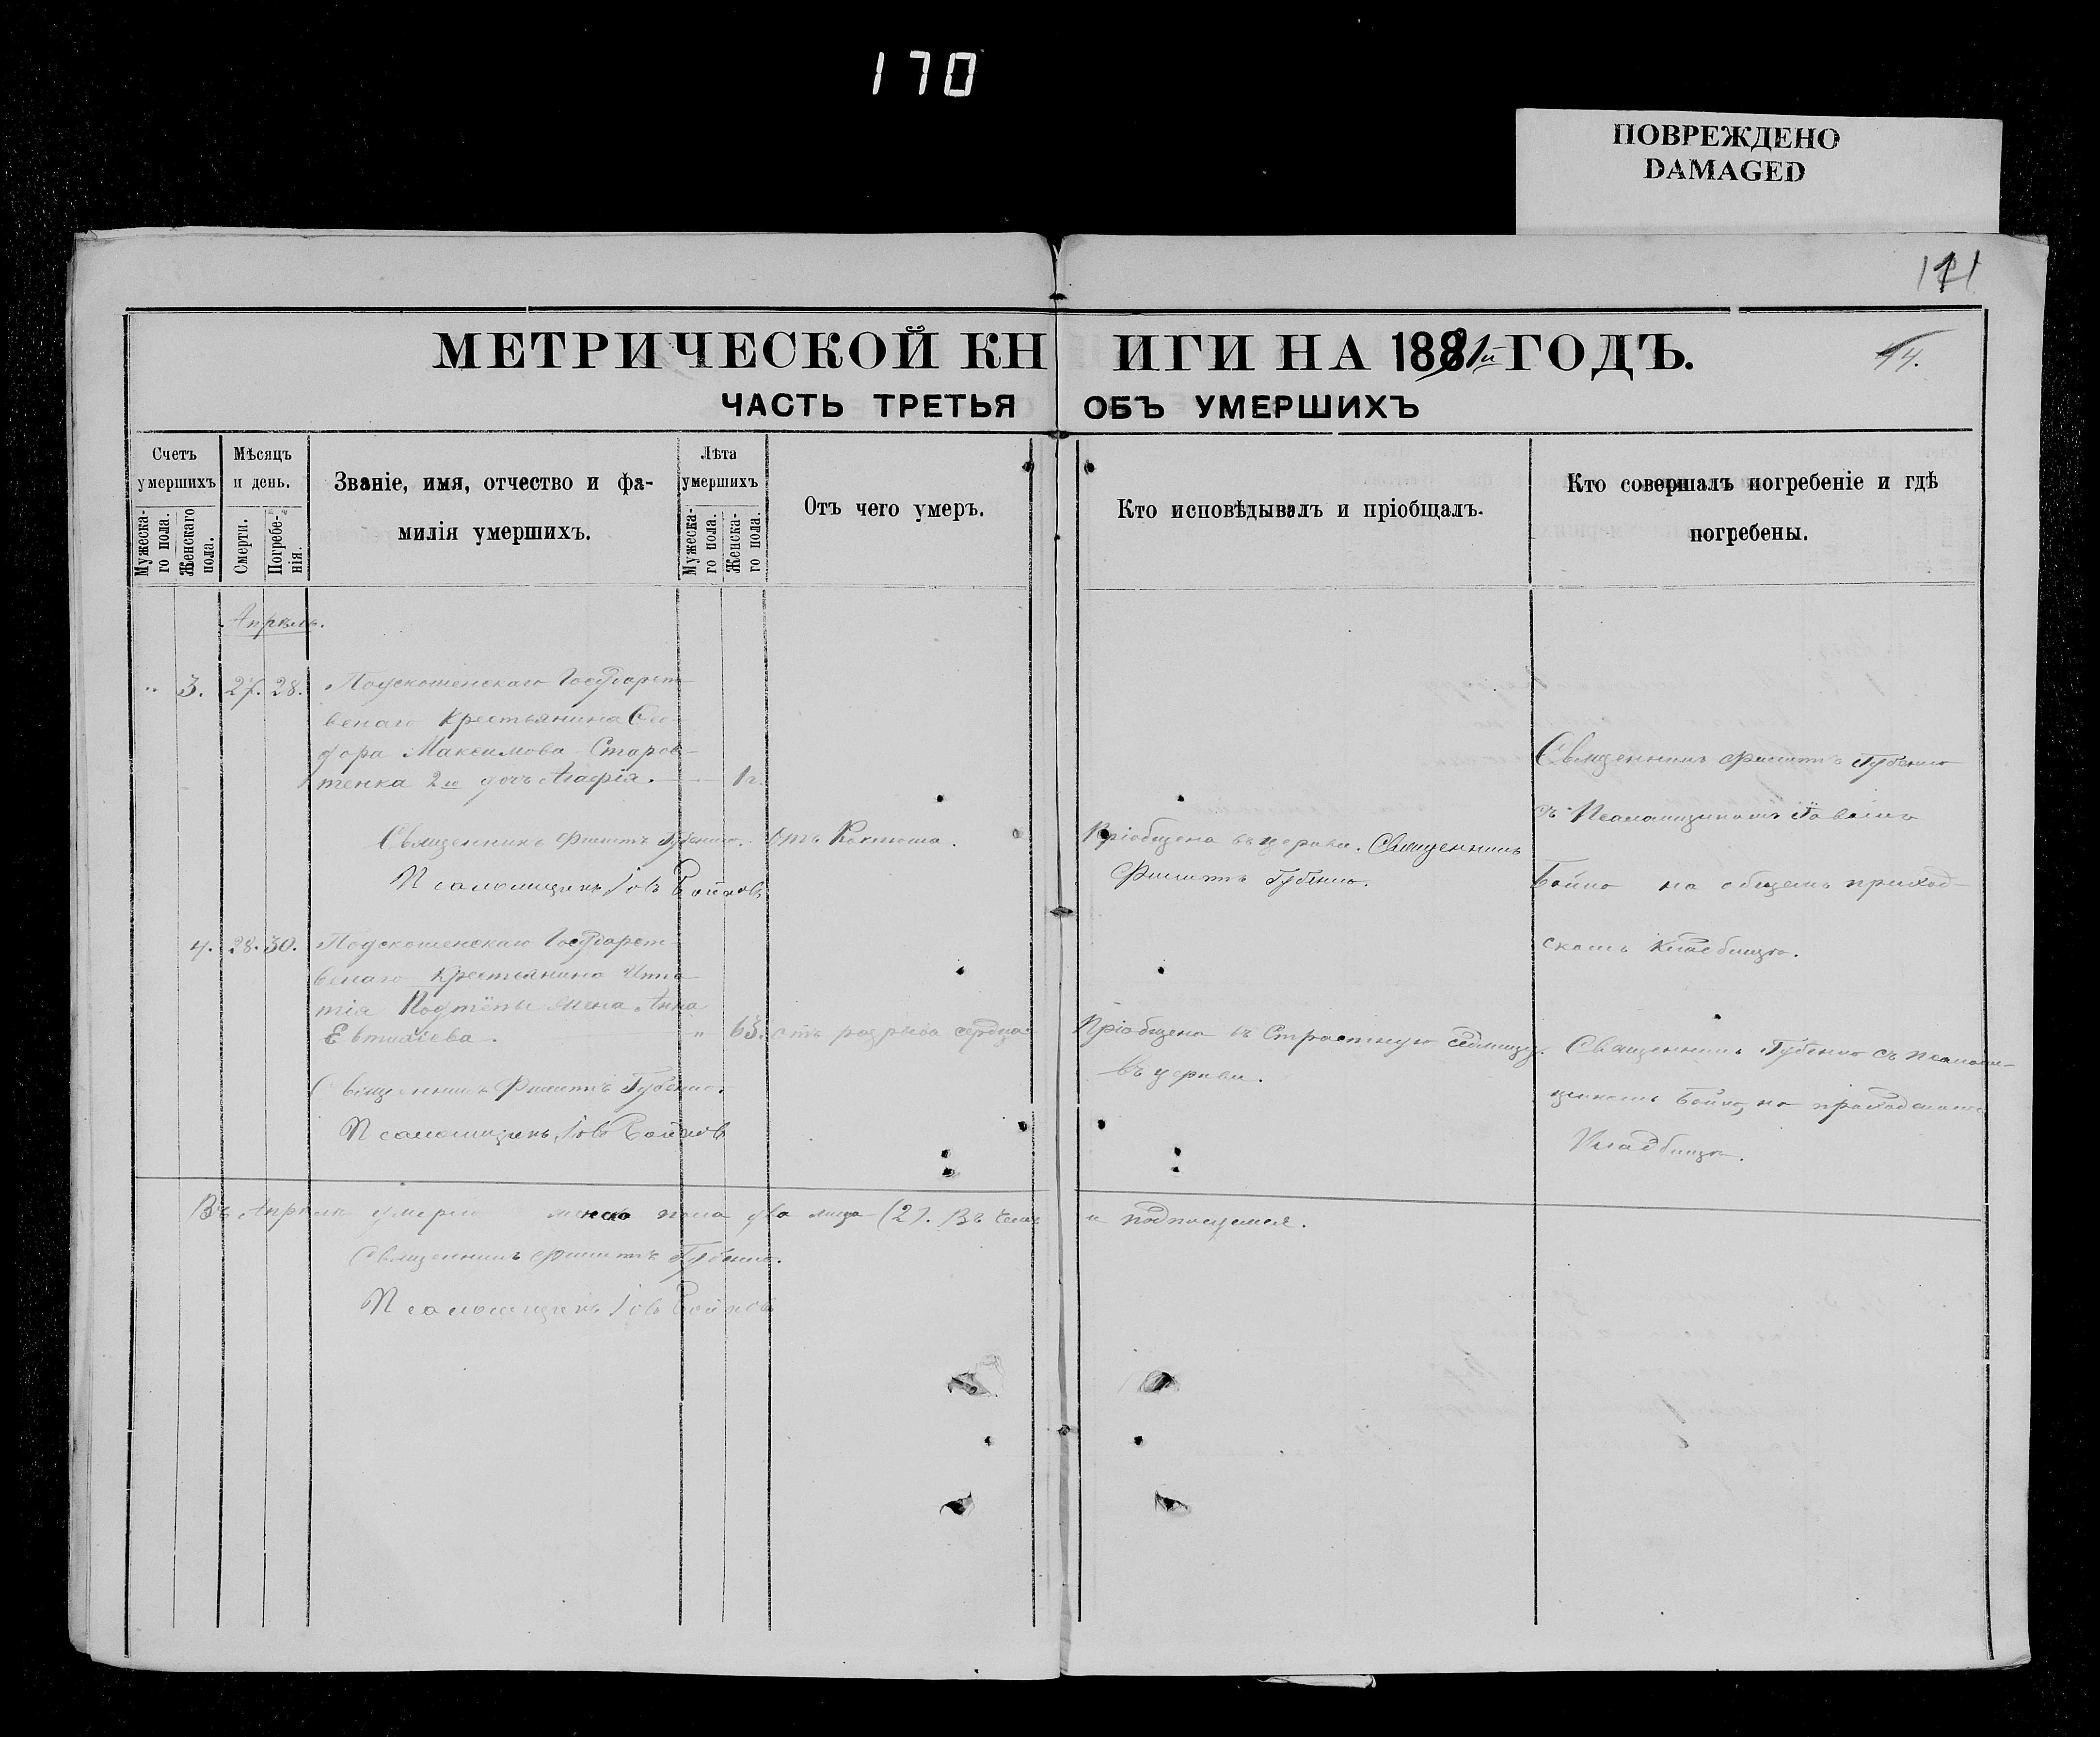 170
ПОВРЕЖДЕНО
DAMAGED
МЕТРИЧЕСКОЙ КНИГИ НА 1881й ГОДЪ.
44.
ЧАСТЬ ТРЕТЬЯ ОБЪ УМЕРШИХЪ
Счетъ умершихъ
Мужеска-го пола.
Женскаго пола.
Мѣсяцъ и день.
Смерти.
Погребе-нія.
Званіе, имя, отчество и фа-
милія умершихъ.
Лѣта умершихъ
Мужеска-го пола.
Женска-го пола.
Отъ чего умеръ.
Кто исповѣдывалъ и пріобщалъ.
Кто совершалъ погребеніе и гдѣ
погребены.
Апрѣль.
" 3. 27. 28.
Государст-
венаго Крестьянина Фео-
дора Максимова Старос-
тенка 2го дочь Агафія. 1г.
Священникъ Филиппъ Губенко.
Псаломщикъ Іовъ Бойковъ
Отъ Коклюша.
Пріобщена въ церкви. Священникъ
Филиппъ Губенко.
Священникъ Филиппъ Губенко
съ Псаломщикомъ Іовомъ
Бойко на общемъ приход-
скомъ кладбищѣ.
4. 28. 30.
Государст-
венаго Крестьянина Игна-
тія жена Анна
Евтихіева. " 63.
Священникъ Филиппъ Губенко.
Псаломщикъ Іовъ Бойковъ
отъ разрыва сердца
Пріобщена въ Страстную седмицу.
въ церкви.
Священникъ Губенко съ псалом-
щикомъ Бойко, на приходскомъ
Кладбищѣ.
Въ Апрѣлѣ умерло женска пола два лица (2). Въ чемъ и подпишемся.
Священникъ Филиппъ Губенко.
Псаломщикъ Іовъ Бойковъ